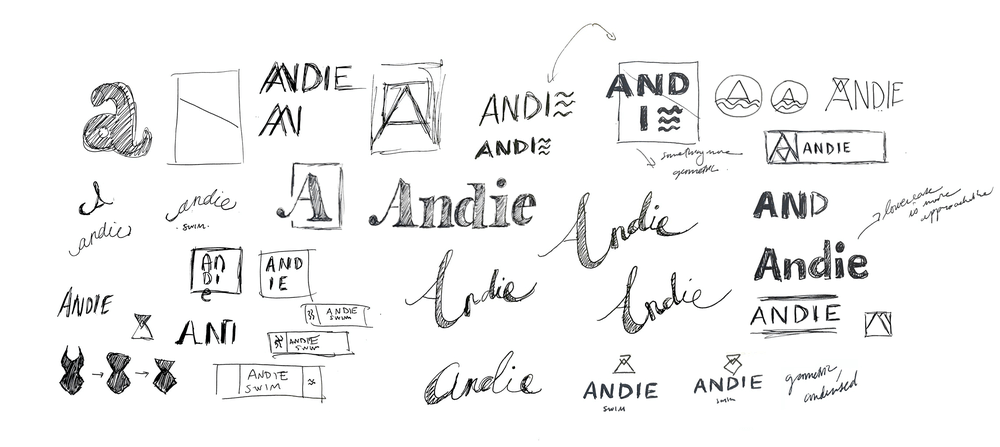 a
ANDIE
AN
A
ANDIE
ANDIE
AND
IE
something more
geometric.
A
A
ANDIE
A ANDIE
A
andie
andie
swim.
A
Andie
Andie
AND
lowercase
is more
approachable
Andie
ANDIE
AN
DI
e
AND
IE
ANDIE
AN
ANDIE
SWIM
ANDIE
SWIM
ANDIE
SWIM
Andie
Andie
Andie
ANDIE
SWIM
ANDIE
swim
geometric,
condensed